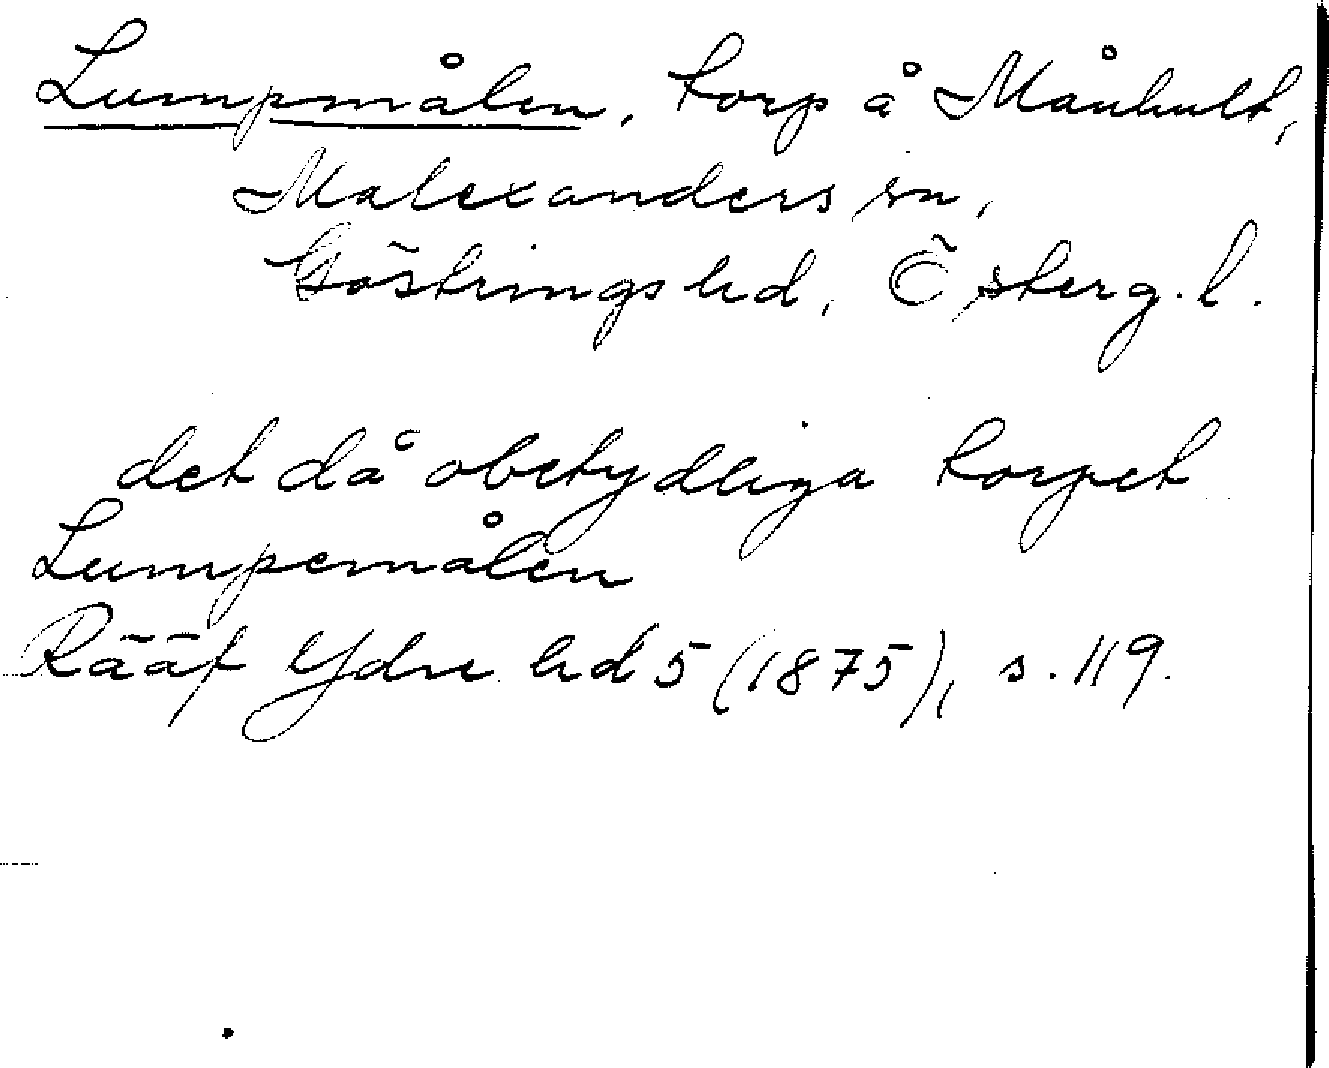 Lumpmålen, torp å Månhult,
Malexanders sn,
Göstrings hd, Österg.l.
det då obetydliga torpet
Lumpemålen
Rääf Ydre hd 5 (1875), s. 119.